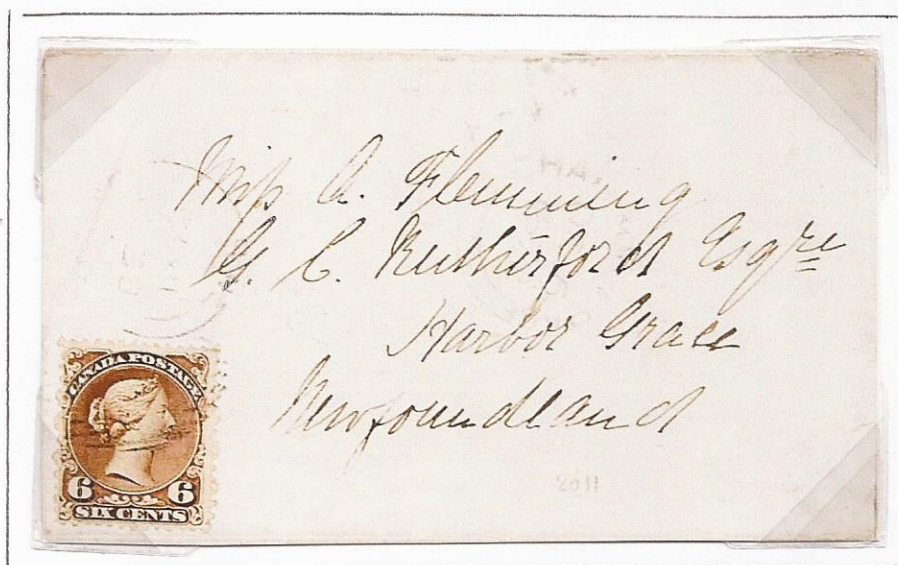 Miss A. Flemming
G. C. Rutherford Esqre
Harbor Grace
Newfoundland
CANADA POSTAGE
6 6
SIX CENTS